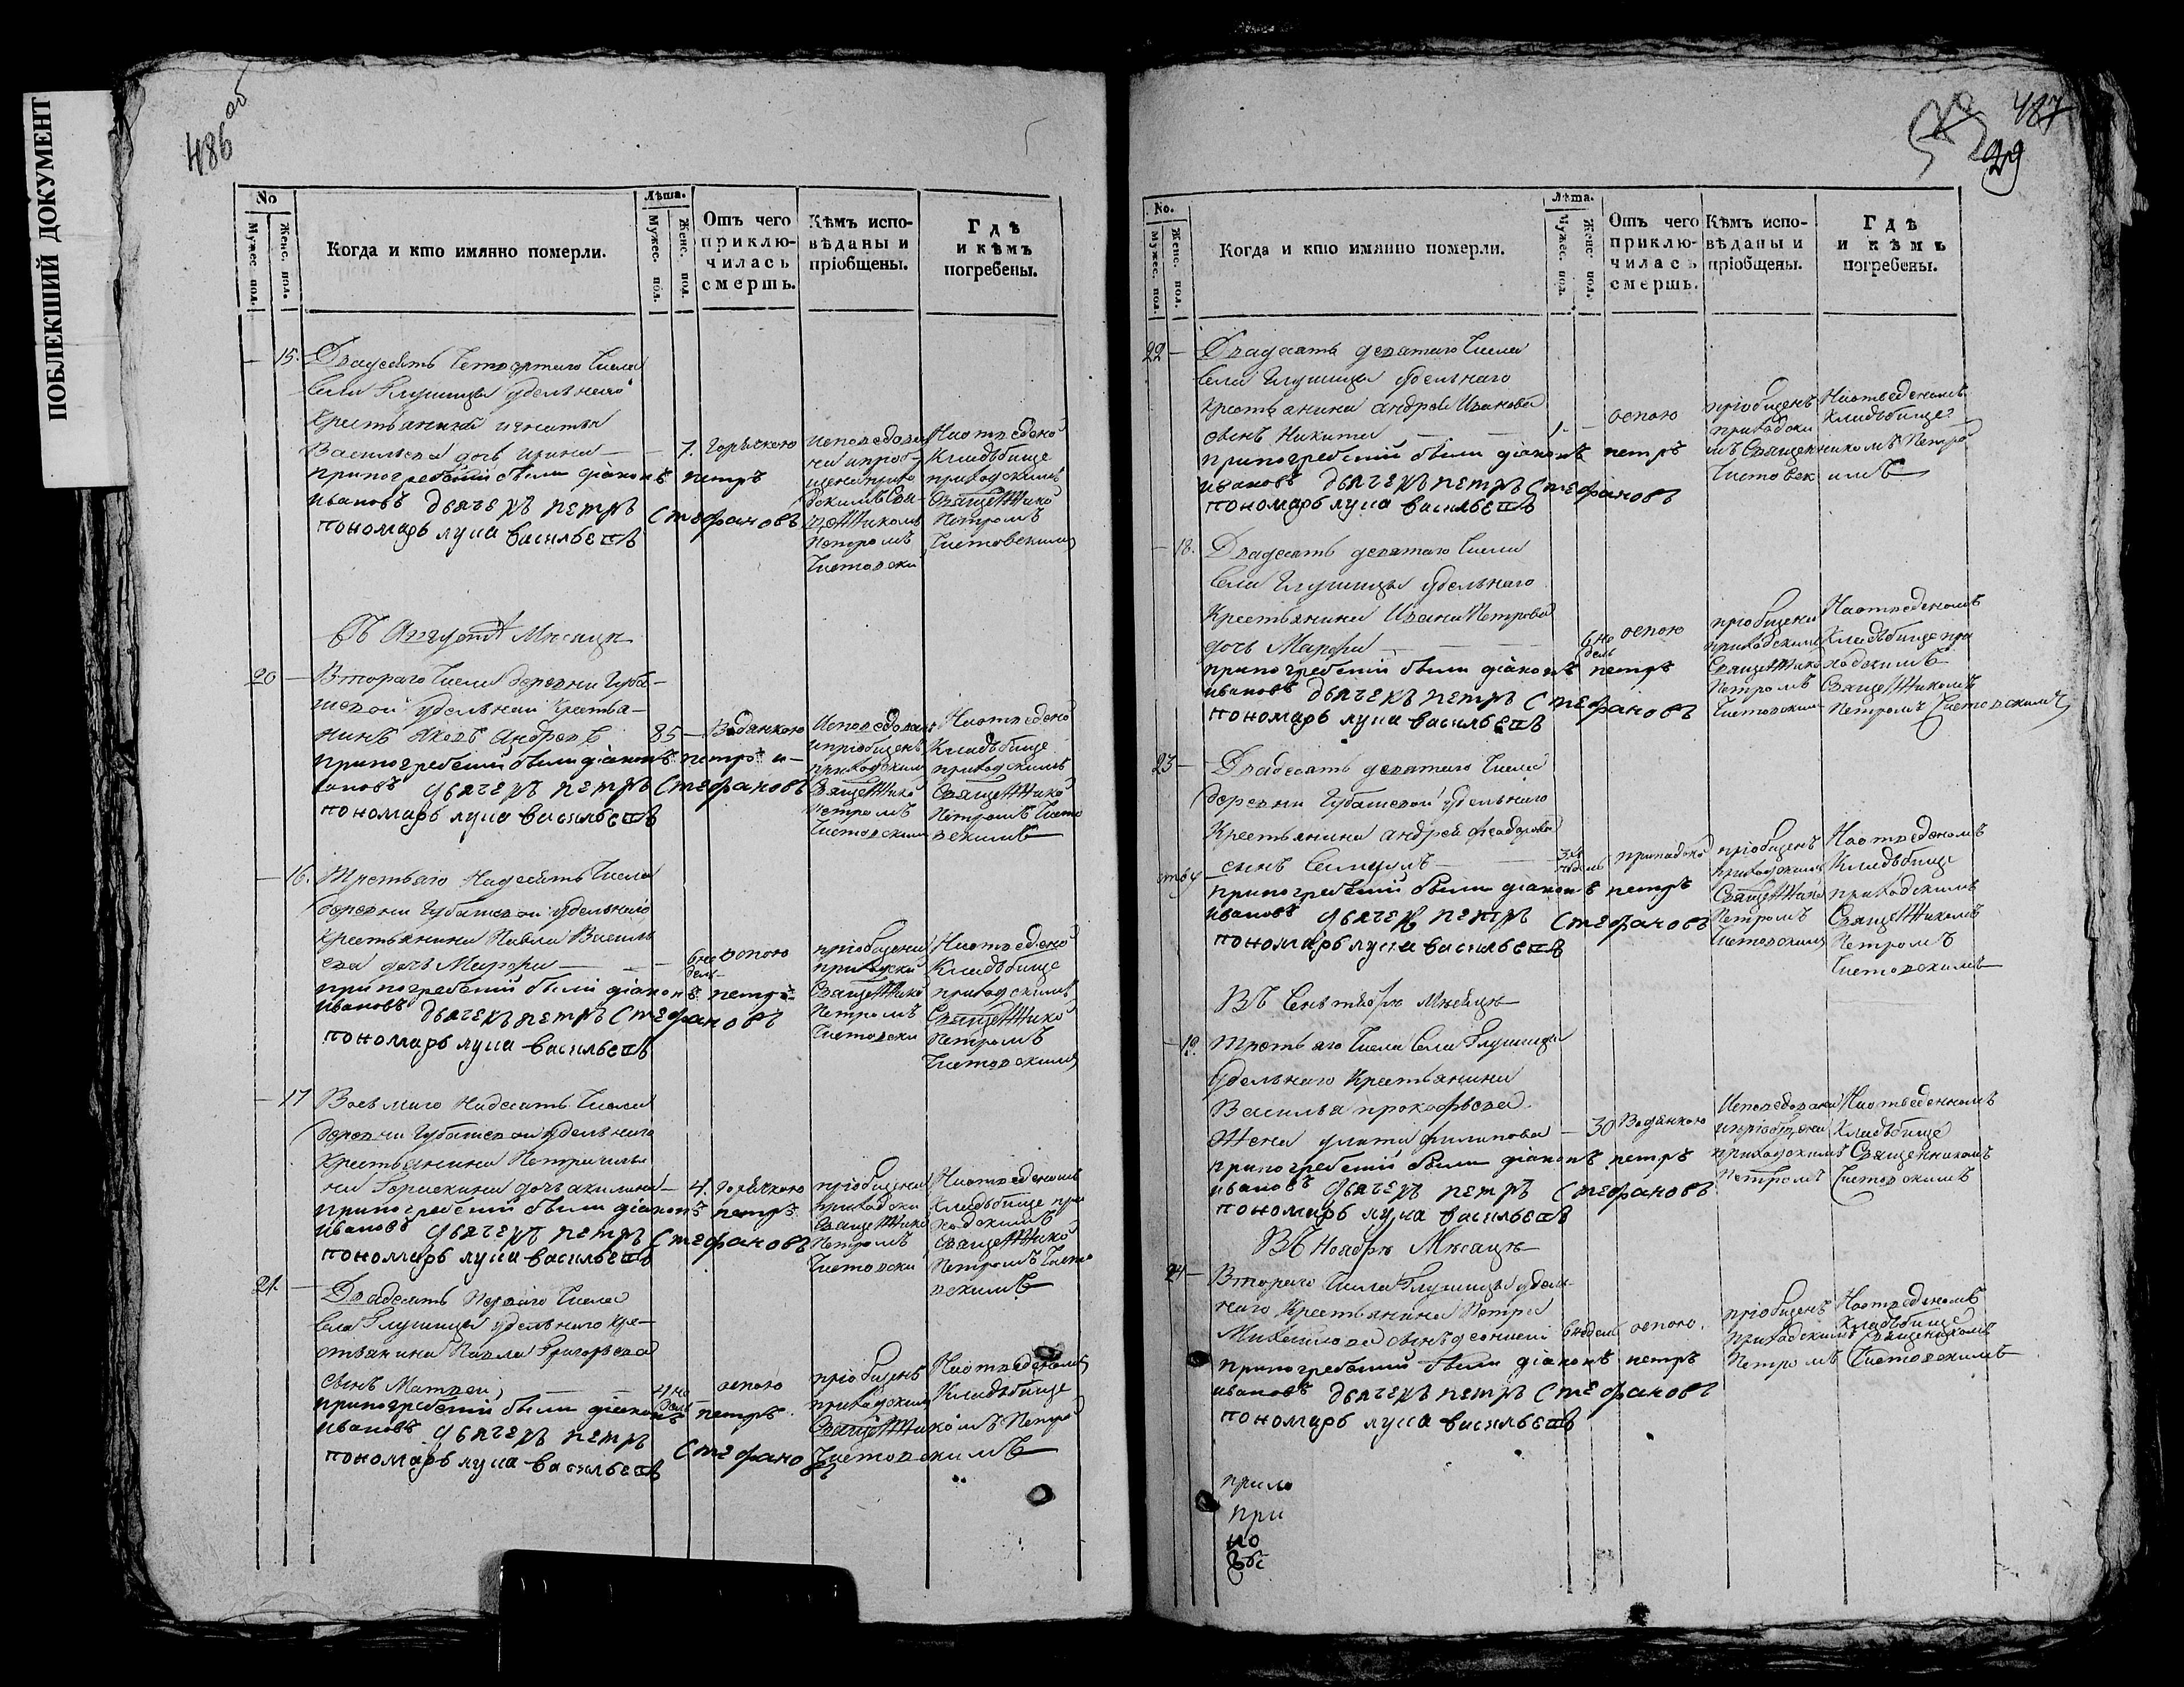 ПОБЛЕКШИЙ ДОКУМЕНТ
486 об
No
Мужес. пол.
Женс. пол.
Когда и кто имянно померли.
Лѣта.
Мужес. пол.
Женс. пол.
Отъ чего
приклю-
чилась
смерть.
Кѣмъ испо-
вѣданы и
пріобщены.
Гдѣ
и кѣмъ
погребены.
15. Двадесять Четвертаго Числа
Села Глушицы удельнаго
Крестьянина игнатья
Васильева дочь ирина — 7. Горячкою
припогребеніи были діаконъ петръ
ивановъ дьячекъ петръ Стефановъ
пономарь лука васильевъ
исповедова
на ипріоб-
щена прихо
дскимъ Свя-
щенникомъ
Петромъ
Чистовски
Наотведено
Кладьбище
приходскимъ
Священнико
Петромъ
Чистовскимъ
Въ Августѣ Мѣсяцѣ
20 — Втораго Числа деревни Губа-
шевой удельный Крестья-
нинъ Яковъ Андреевъ 85 — Водянкою
припогребеніи были діаконъ петръ и-
вановъ дьячекъ петръ Стефановъ
пономарь лука васильевъ
Исповедованъ
ипріобщенъ
приходским
Священнико
Петромъ
Чистовским
Наотведено
Кладьбище
приходскимъ
Священнико
Петромъ Чисто
вскимъ
16. Третьяго Надесять Числа
деревни Губашевой удельнаго
Крестьянина Павла Василь
ева дочь Марфа — 6 не дель оспою
припогребеніи были діаконъ петръ
ивановъ дьячекъ петръ Стефановъ
пономарь лука васильевъ
пріобщена
приходски
Священнико
Петромъ
Чистовски
Наотведено
Кладьбище
приходскимъ
Священнико
Петромъ
Чистовскимъ
17 Восьмаго Надесять Числа
деревни Губашевой удельнаго
Крестьянина Петра
дочь акилина — 4. Горячкою
припогребеніи были діаконъ петръ
ивановъ дьячекъ петръ Стефановъ
пономарь лука васильевъ
пріобщена
приходски
Священнико
Петромъ
Чистовски
Наотведеномъ
Кладьбище при
ходскимъ
Священнико
Петромъ Чисто
вскимъ
21. — Двадесять Перваго Числа
Села Глушицы удельнаго кре-
стьянина Павла Григорьева
сынъ Матвеи — 4 не дель оспою
припогребеніи были діаконъ петръ
ивановъ дьячекъ петръ Стефановъ
пономарь лука васильевъ
пріобщенъ
приходским
Священникомъ Петро
Чистовскимъ
Наотведеномъ
Кладьбище
487
29
No.
Мужес. пол.
Женс. пол.
Когда и кто имянно померли.
Лѣта.
Мужес. пол.
Женс. пол.
Отъ чего
приклю-
чилась
смерть.
Кѣмъ испо-
вѣданы и
пріобщены.
Гдѣ
и кѣмъ
погребены.
22 — Двадесять девятаго Числа
Села Глушицы удельнаго
Крестьянина андрея Иванова
сынъ Никита — 1. — оспою
припогребеніи были діаконъ петръ
ивановъ дьячекъ петръ Стефановъ
пономарь лука васильевъ
пріобщенъ
приходски
мъ Священникомъ Петро
Чистовскимъ
Наотведеномъ
Кладьбище
— 18. Двадесять девятаго Числа
Села Глушицы удельнаго
Крестьянина Ивана Петрова
дочь Марфа — 6 не дель оспою
припогребеніи были діаконъ петръ
ивановъ дьячекъ петръ Стефановъ
пономарь лука васильевъ
пріобщена
приходским
Священнико
Петромъ
Чистовским
Наотведеномъ
Кладьбище при
ходскимъ
Священникомъ
Петромъ Чистовскимъ
23 — Двадесять девятаго Числа
деревни Губашевой удельнаго
Крестьянина андрея Феодорова
сынъ Самуилъ — 3 х недель припадко
припогребеніи были діаконъ петръ
ивановъ дьячекъ петръ Стефановъ
пономарь лука васильевъ
пріобщенъ
приходским
Священнико
Петромъ
Чистовским
Наотведеномъ
Кладьбище
приходскимъ
Священникомъ
Петромъ
Чистовскимъ
Въ Сентябрѣ Мѣсяцѣ
— 19. Третьяго Числа Села Глушицы
Удельнаго Крестьянина
Василья прокофьева
Жена улита филипова — 30 Водянкою
припогребеніи были діаконъ петръ
ивановъ дьячекъ петръ Стефановъ
пономарь лука васильевъ
Исповедована
ипріобщена
приходскимъ Священникомъ
Петромъ Чистовскимъ
Наотведенномъ
Кладьбище
Въ Ноябрѣ Мѣсяцѣ
24 — Втораго Числа Глушицы удель-
наго Крестьянина Петра
Михайлова сынъ деонисеи 6 недель оспою.
припогребеніи были діаконъ петръ
ивановъ дьячекъ петръ Стефановъ
пономарь лука васильевъ
пріобщенъ
приходскимъ Священикомъ
Петромъ Чистовскимъ
Наотведеномъ
Кладьбище
при
но